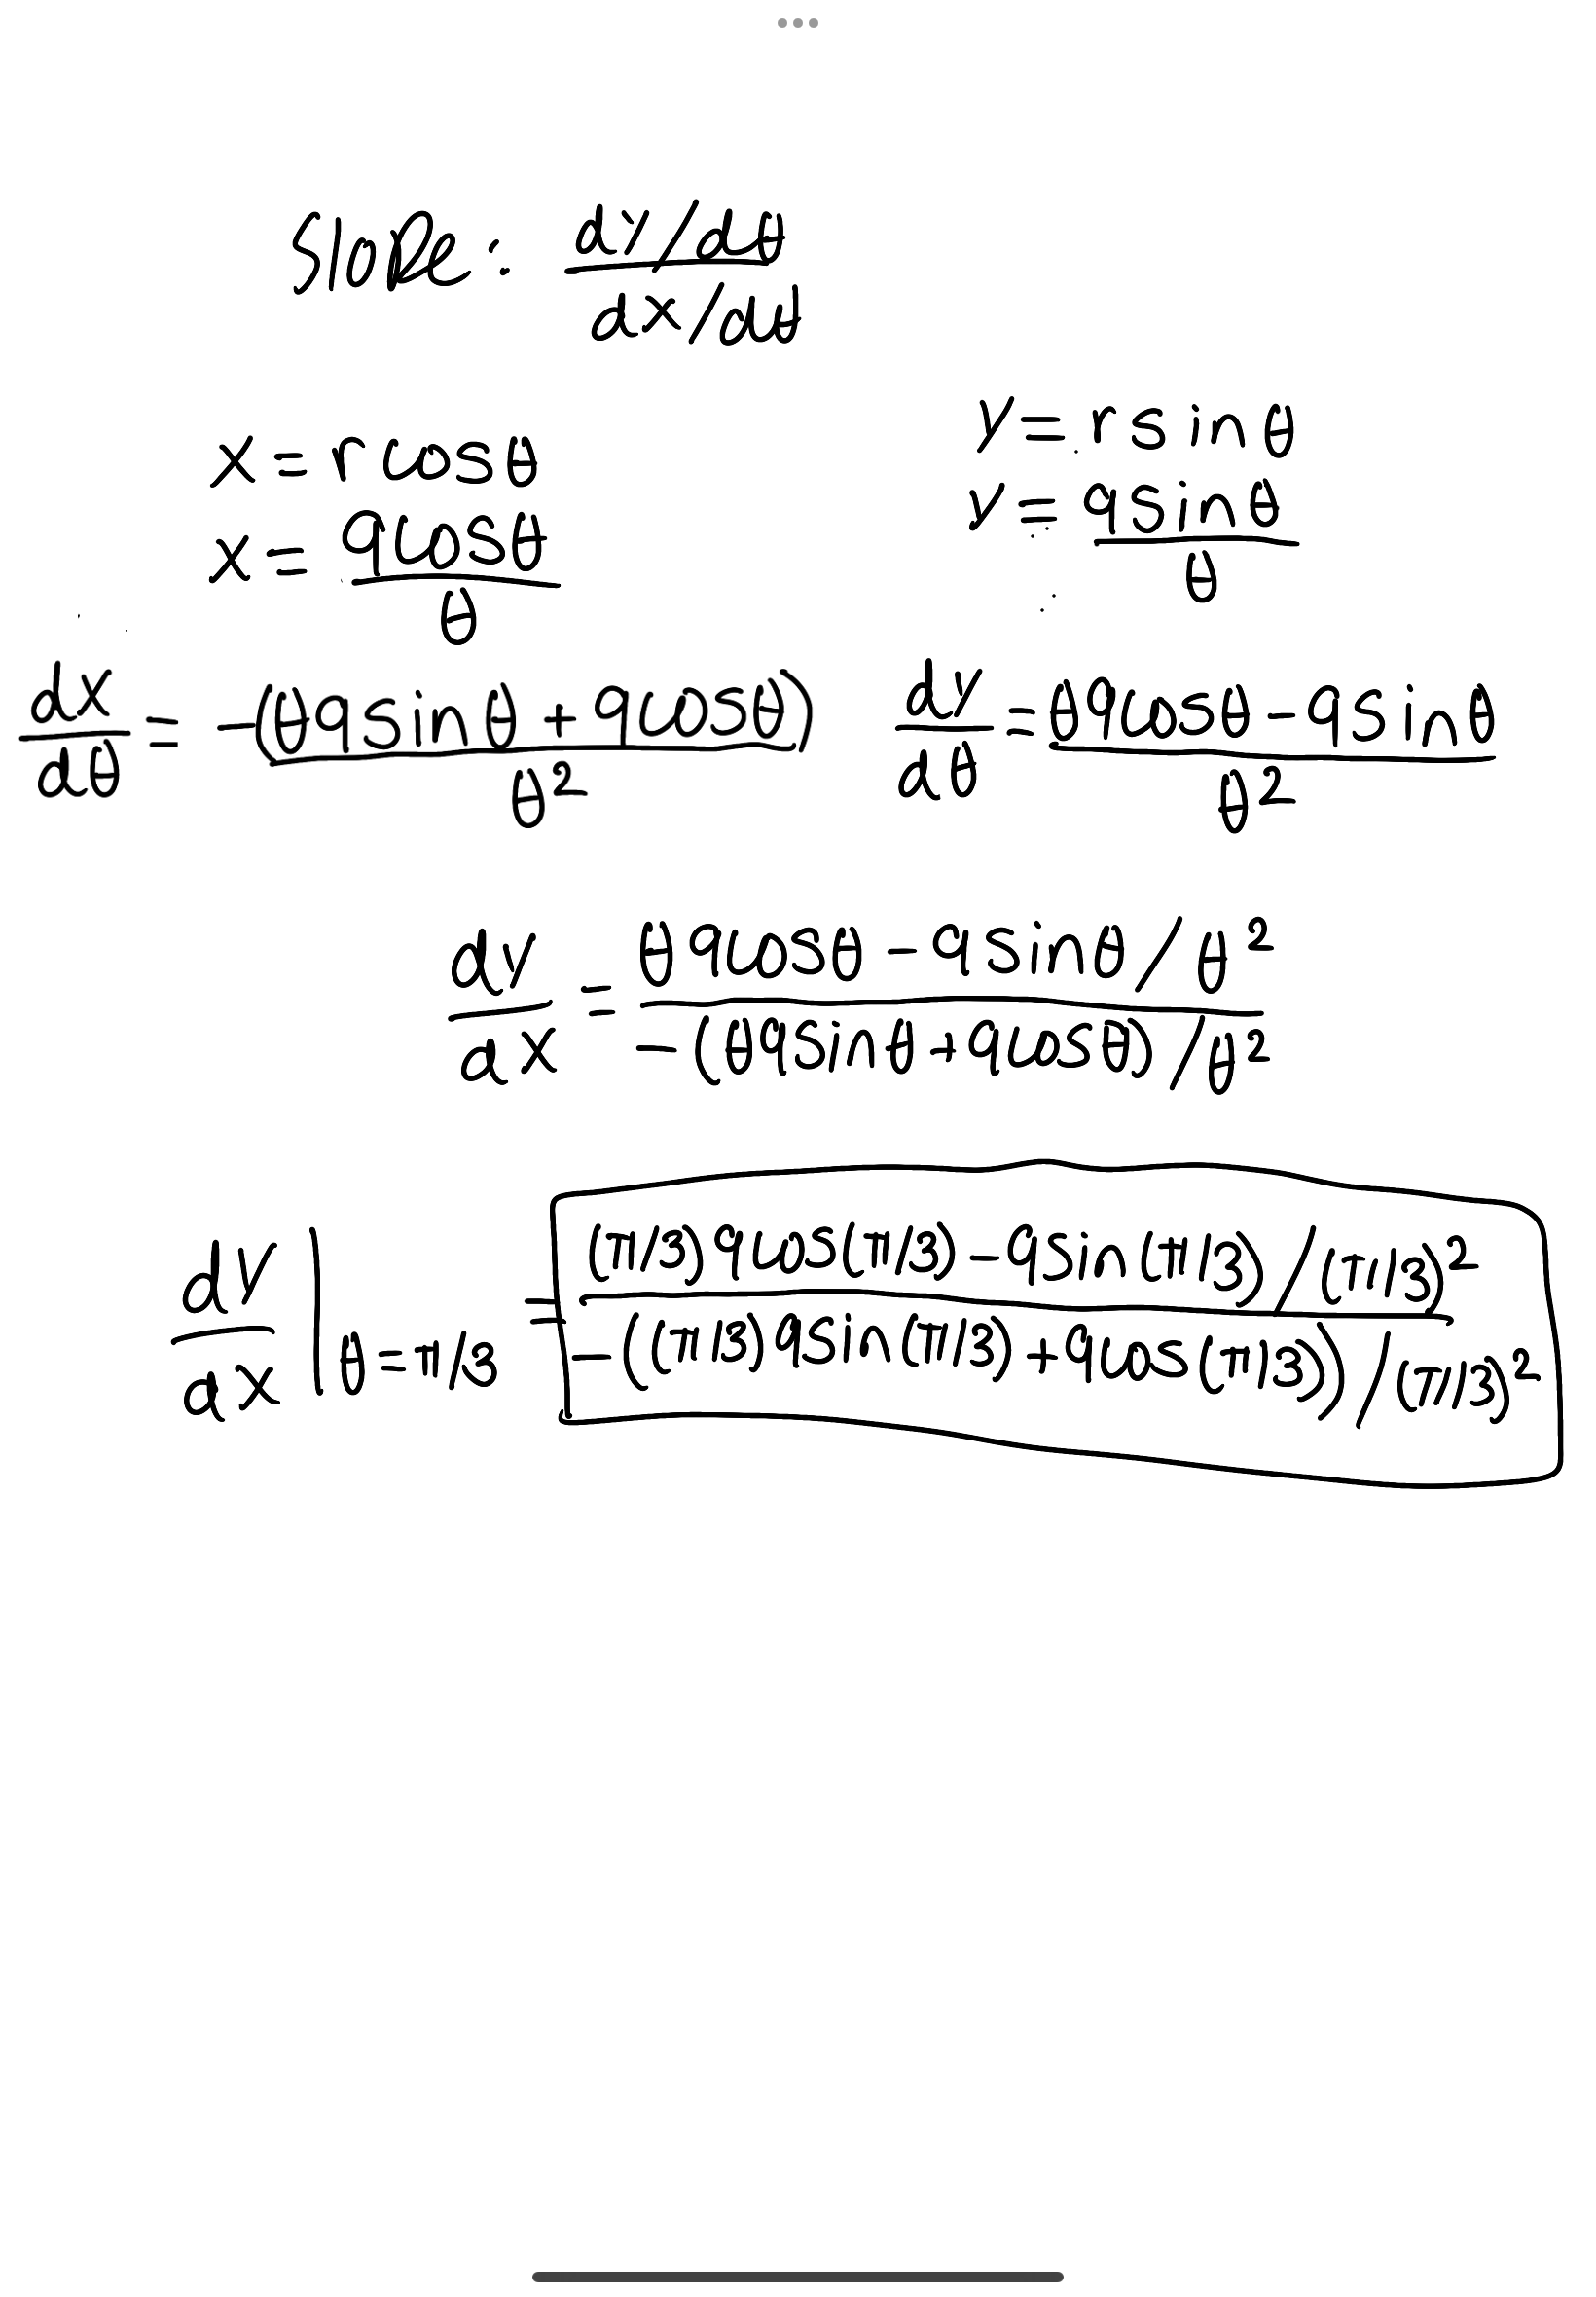 Slope: (dy/dθ)/(dx/dθ)
x = rcosθ
y = rsinθ
x = 9cosθ/θ
y = 9sinθ/θ
dx/dθ = -(θ9sinθ + 9cosθ)/θ²
dy/dθ = θ9cosθ - 9sinθ/θ²
dy/dx = θ9cosθ - 9sinθ/θ² / -(θ9sinθ + 9cosθ)/θ²
dy/dx | θ = π/3 = (π/3)9cos(π/3) - 9sin(π/3)/(π/3)² / -((π/3)9sin(π/3) + 9cos(π/3))/(π/3)²